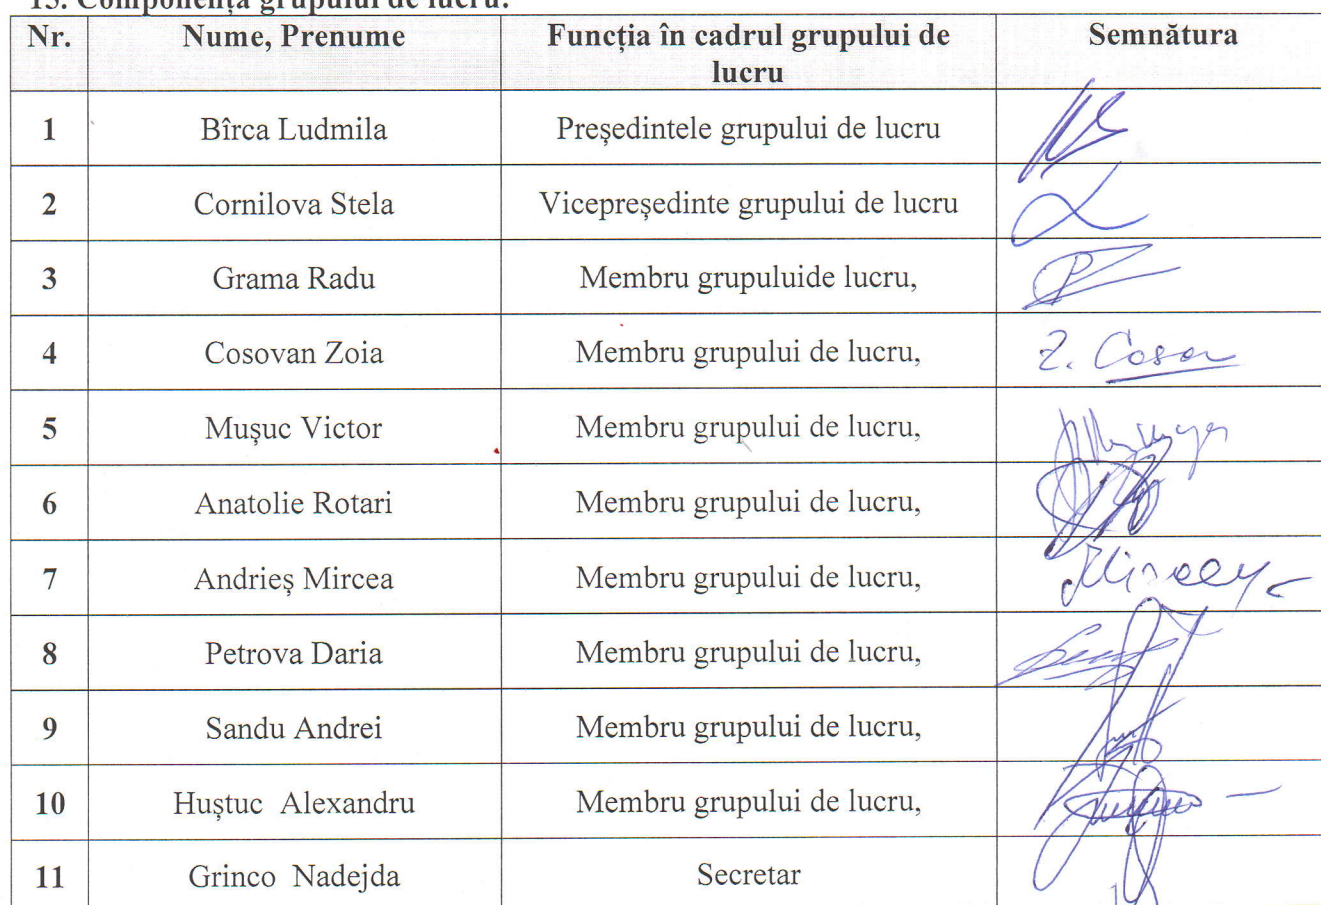 15. Componența grupului de lucru:
Nr. Nume, Prenume Funcția în cadrul grupului de lucru Semnătura
1 Bîrca Ludmila Președintele grupului de lucru
2 Cornilova Stela Vicepreședinte grupului de lucru
3 Grama Radu Membru grupuluide lucru,
4 Cosovan Zoia Membru grupului de lucru, Z. Cosov
5 Mușuc Victor Membru grupului de lucru,
6 Anatolie Rotari Membru grupului de lucru,
7 Andrieș Mircea Membru grupului de lucru,
8 Petrova Daria Membru grupului de lucru,
9 Sandu Andrei Membru grupului de lucru,
10 Huștuc Alexandru Membru grupului de lucru,
11 Grinco Nadejda Secretar